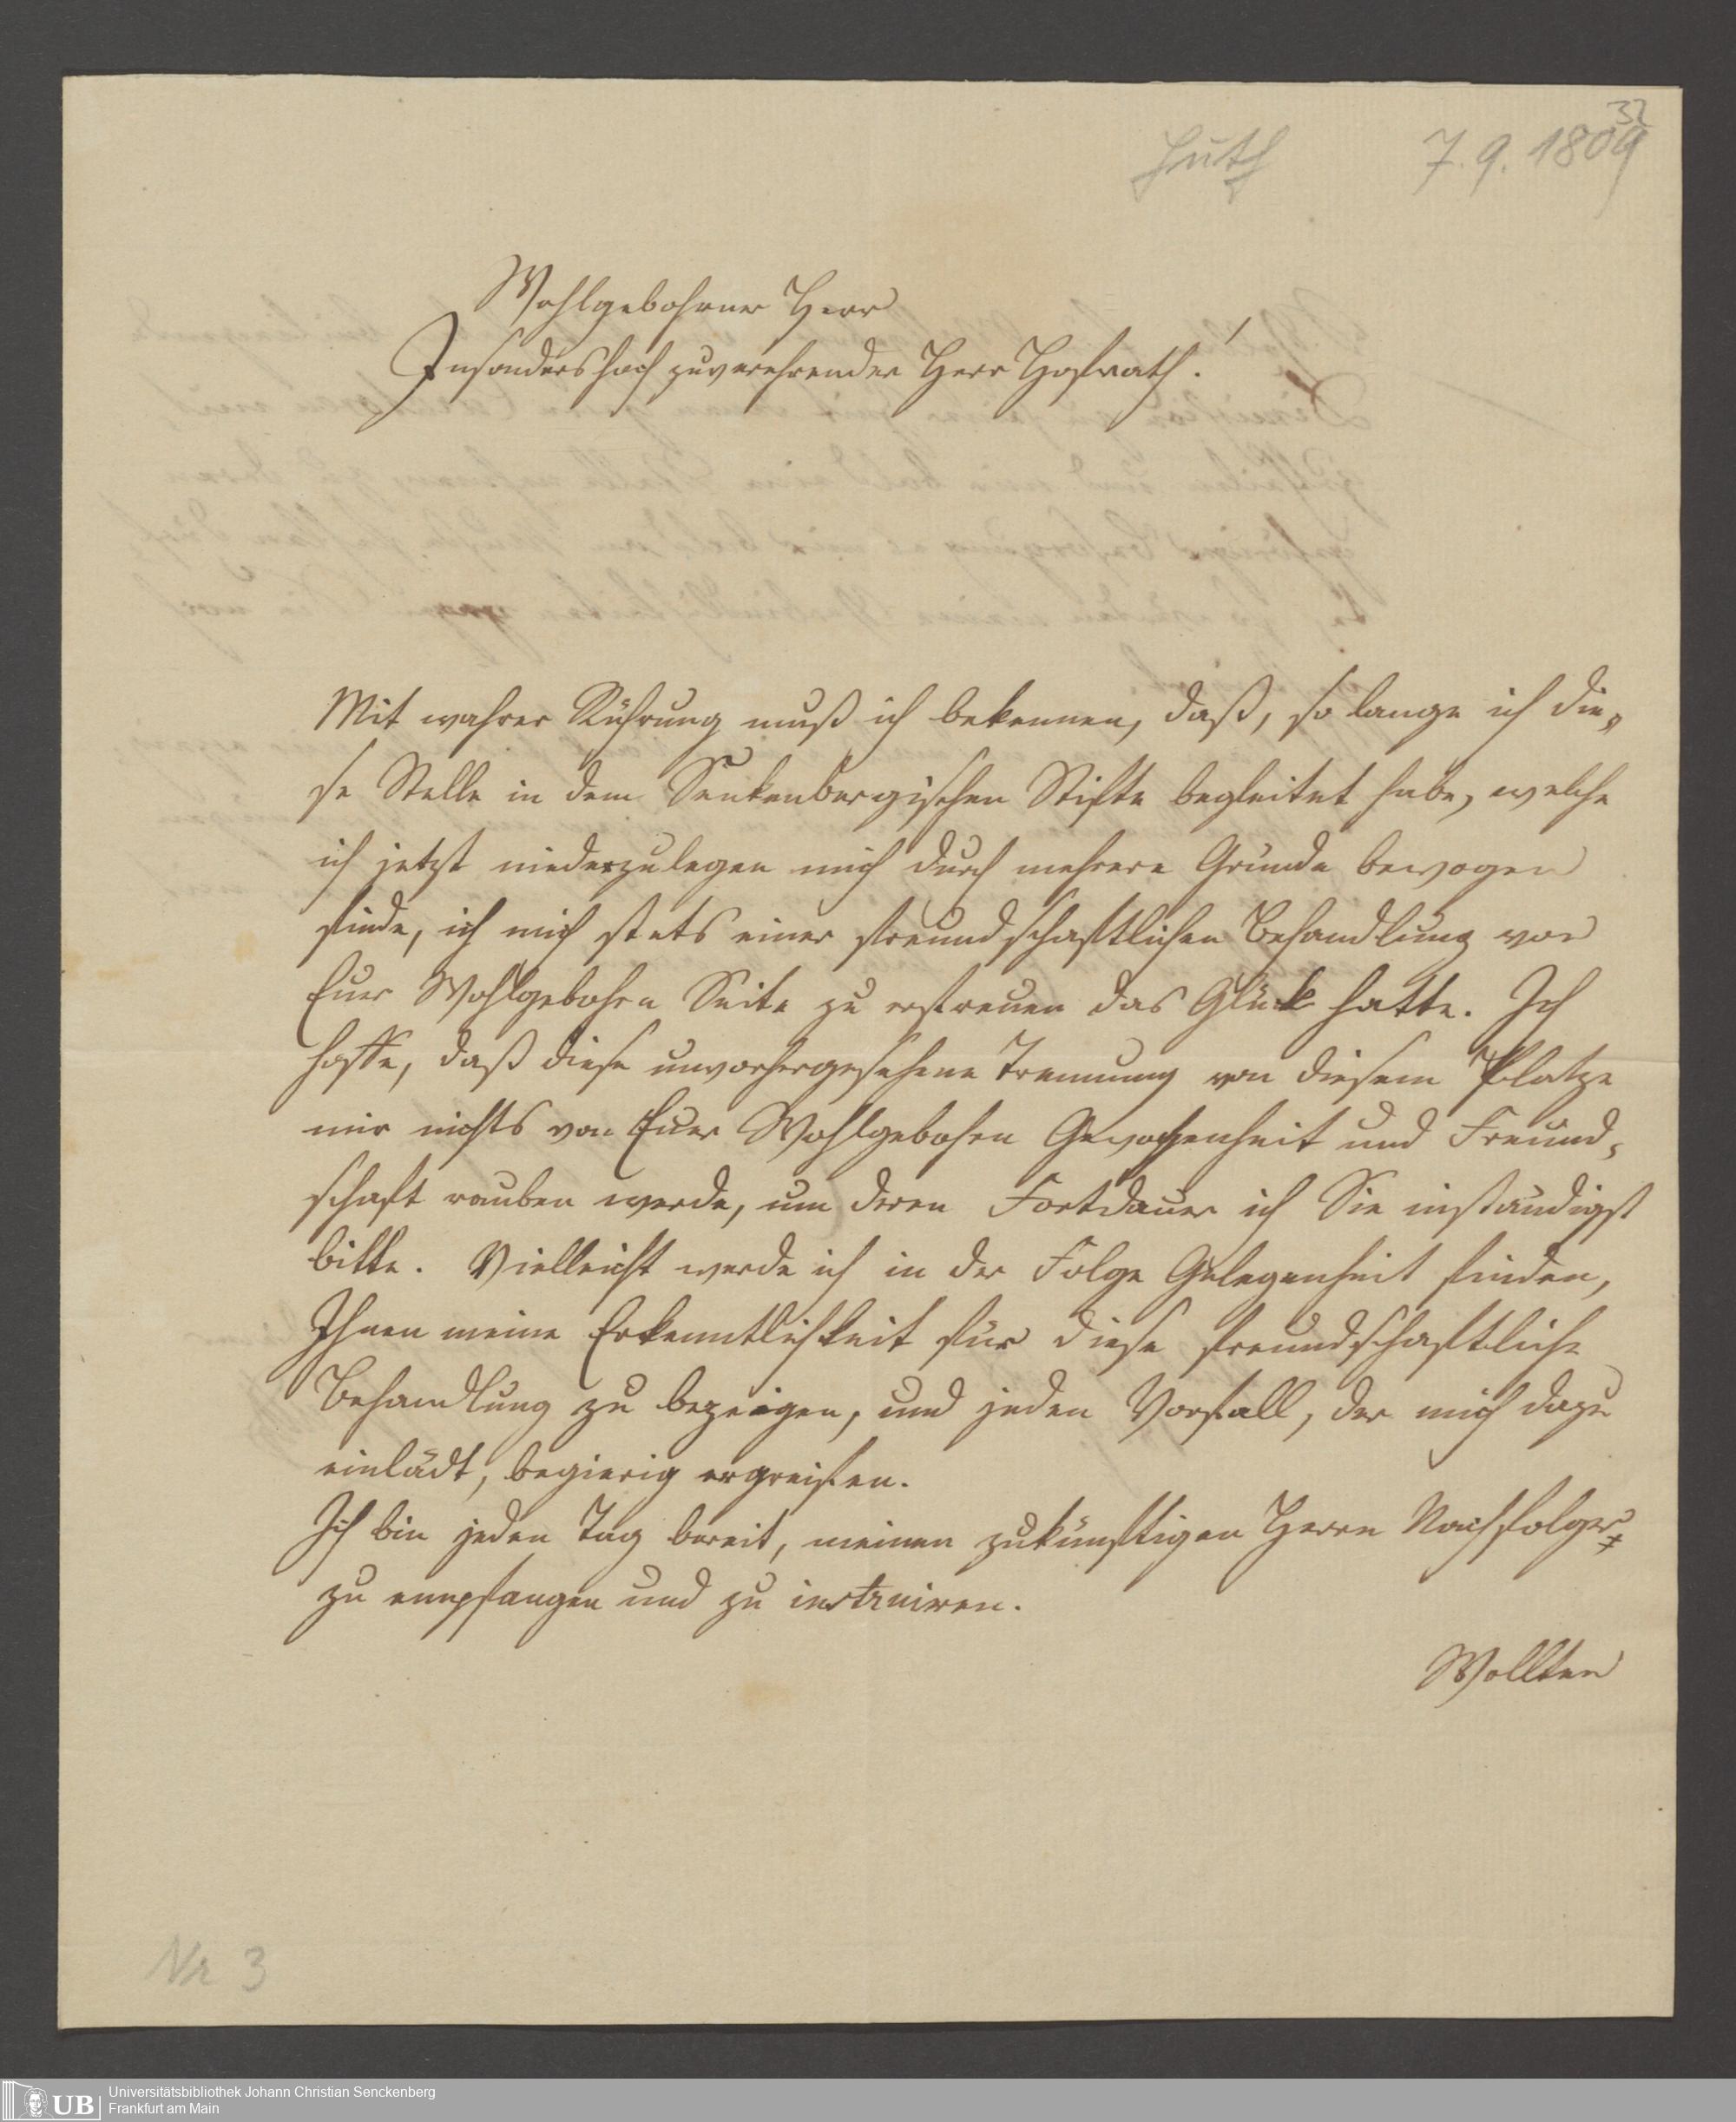 32
Huth 7.9.1809
Wohlgebohrner Herr
Insonders hoch zuverehrender Herr Hofrath!
Mit wahrer Rührung muß ich bekennen, daß, so lange ich die,
se Stelle in dem Senkenbergischen Stifte begleitet habe, welche
ich jetzt niederzulegen mich durch mehrere Gründe bewogen
finde, ich mich stets einer freundschaftlichen Behandlung von
Euer Wohlgebohrn Seite zu erfreuen das Glück hatte. Ich
hoffe, daß diese unvorhergesehene Trennung von diesem Platze
mir nichts von Euer Wohlgebohrn Gewogenheit und Freund,
schaft rauben werde, um deren Fortdauer ich Sie inständigst
bitte. Vielleicht werde ich in der Folge Gelegenheit finden,
Ihnen meine Erkenntlichkeit für diese freundschaftliche
Behandlung zu bezeigen, und jeden Vorfall, der mich dazu
einlädt, begierig ergreifen.
Ich bin jeden Tag bereit, meinen zukünftigen Herrn Nachfolger
zu empfangen und zu instruiren.
Wollten
Nr 3
UB Universitätsbibliothek Johann Christian Senckenberg
Frankfurt am Main